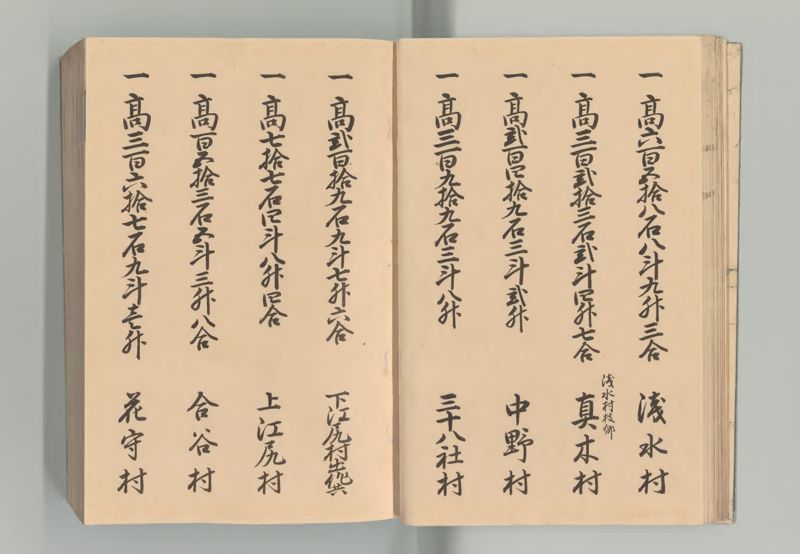 一高六百五拾八石八斗九升三合 浅水村
一高三百弐拾三石弐斗四升七合 浅水村枝郷 真木村
一高弐百四拾九石三斗弐升 中野村
一高三百九拾九石三斗八升 三十八社村
一高弐百拾九石九斗七升六合 下江尻村
一高七拾七石四斗八升四合 上江尻村
一高百五拾三石五斗三升八合 合谷村
一高三百六拾七石九斗壱升 花守村